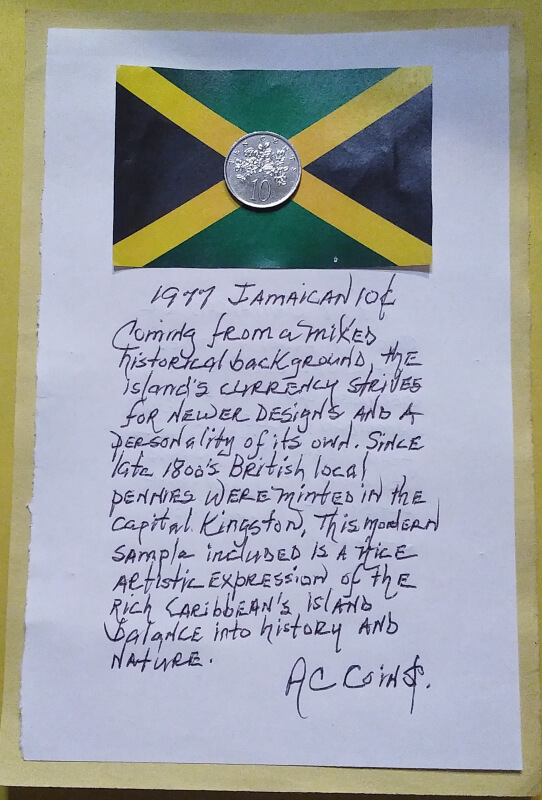 10
1977 JAMAICAN 10¢
Coming from a mixed
historical background the
island's currency strives
for newer designs and a
personality of its own. Since
late 1800's British local
pennies were minted in the
capital Kingston, This modern
sample included is a nice
artistic expression of the
rich Caribbean's island
balance into history and
nature.
AC Coin$.